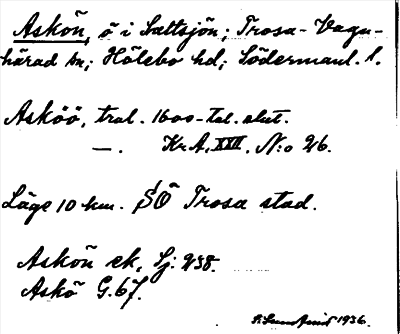 Askön, ö i Saltsjön; Trosa-Vagn-
härad sn; Hölebo hd; Södermanl. l.
Asköö, trol. 1600-tal. slut.
—. Kr.A. XXII, N:o 26.
Läge 10 km. SÖ Trosa stad.
Askön ek. Sj: 238.
Askö G.67.
1936.